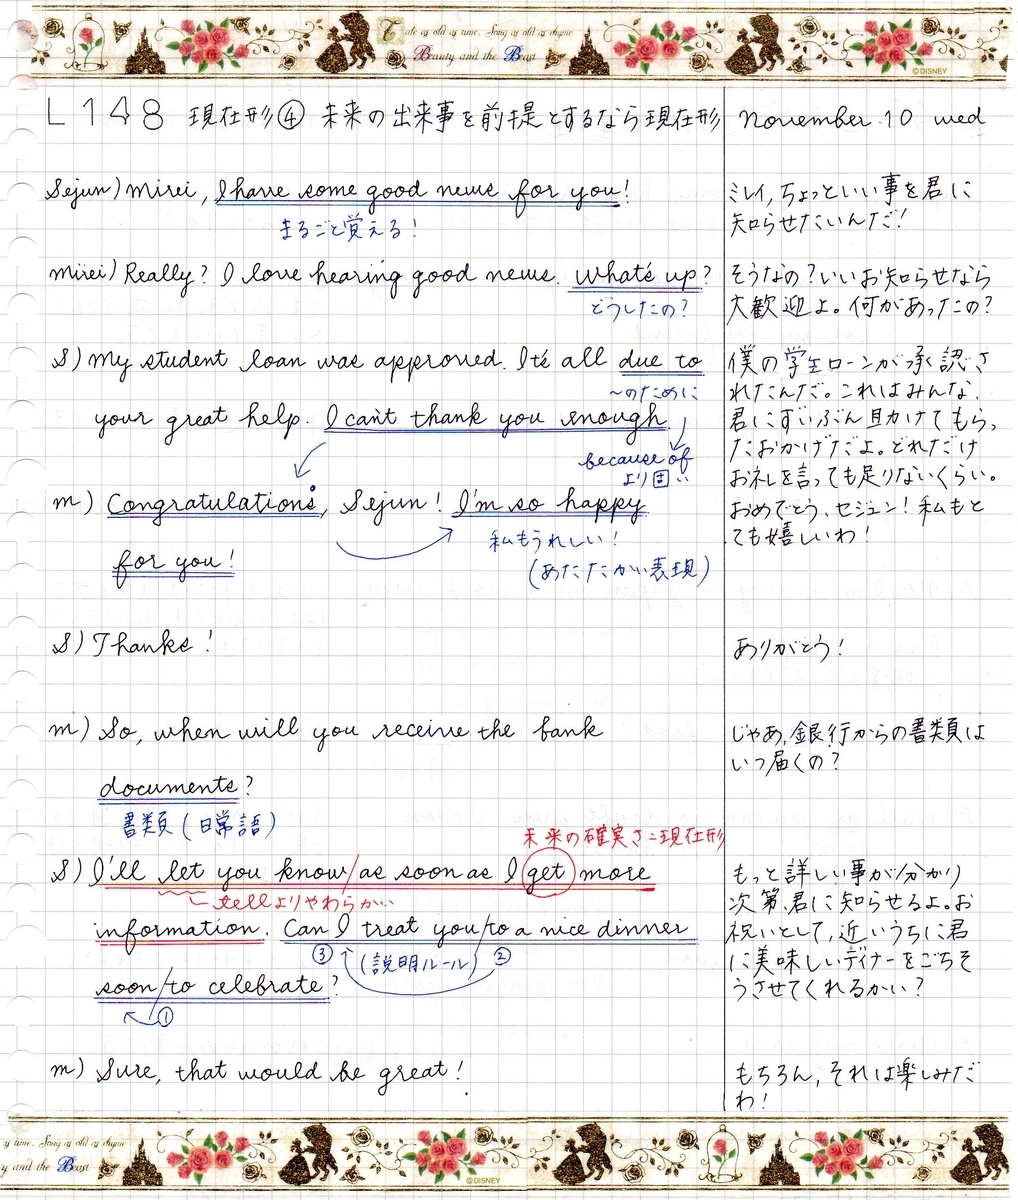 Tale as old as time, Song as old as rhyme
Beauty and the Beast
©DISNEY
L148 現在形④ 未来の出来事を前提とするなら現在形 November 10 wed
Sejun) Mirei, I have some good news for you!
まるごと覚える!
ミレイ,ちょっといい事を君に
知らせたいんだ!
Mirei) Really? I love hearing good news. What's up?
どうしたの?
そうなの?いいお知らせなら
大歓迎よ。何があったの?
S) My student loan was approved. It's all due to
〜のために
your great help. I can't thank you enough
because of
より固い
僕の学生ローンが承認さ
れたんだ。これはみんな、
君にずいぶん助けてもらっ
たおかげだよ。どれだけ
お礼を言っても足りないくらい。
M) Congratulations, Sejun! I'm so happy
私もうれしい!
for you!
(あたたかい表現)
おめでとう、セジュン!私もと
ても嬉しいわ!
S) Thanks!
ありがとう!
M) So, when will you receive the bank
documents?
書類(日常語)
じゃあ,銀行からの書類は
いつ届くの?
未来の確実さ=現在形
S) I'll let you know/as soon as I get more
tellよりやわらかい
information. Can I treat you/to a nice dinner
③ (説明ルール) ②
soon/to celebrate?
①
もっと詳しい事が分かり
次第、君に知らせるよ。お
祝いとして,近いうちに君
に美味しいディナーをごちそ
うさせてくれるかい?
M) Sure, that would be great!
もちろん,それは楽しみだ
わ!
as time, Song as old as rhyme
y and the Beast
©DISNEY